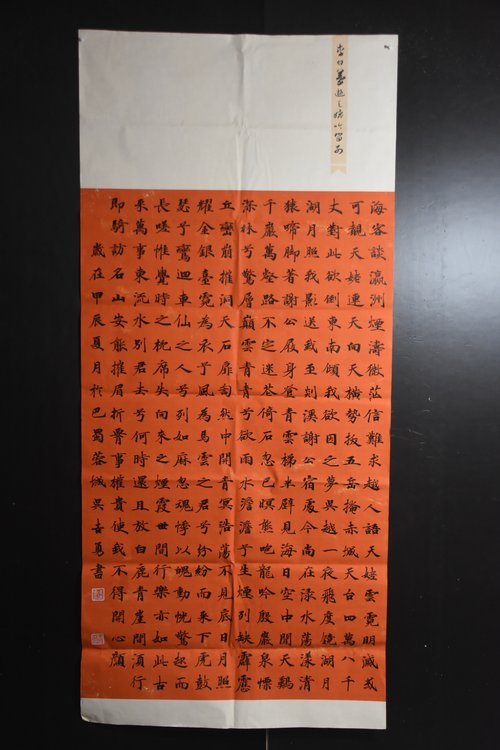 李白夢遊天姥吟留別
海客談瀛洲煙濤微茫信難求越人語天姥雲霓明滅或
可覩天姥連天向天橫勢拔五岳掩赤城天台四萬八千
丈對此欲倒東南傾我欲因之夢吳越一夜飛度鏡湖月
湖月照我影送我至剡溪謝公宿處今尚在淥水蕩漾清
猿啼脚著謝公屐身登青雲梯半壁見海日空中聞天鷄
千巖萬壑路不定迷花倚石忽已暝熊咆龍吟殷巖泉慄
深林兮驚層巔雲青青兮欲雨水澹澹兮生煙列缺霹靂
丘巒崩摧洞天石扉訇然中開青冥浩蕩不見底日月照
耀金銀臺霓為衣兮風為馬雲之君兮紛紛而來下虎鼓
瑟兮鸞迴車仙之人兮列如麻忽魂悸以魄動恍驚起而
長嗟惟覺時之枕席失向來之煙霞世間行樂亦如此古
來萬事東流水別君去兮何時還且放白鹿青崖間須行
即騎訪名山安能摧眉折腰事權貴使我不得開心顏
歲在甲辰夏月於巴蜀蓉城吳吉勇書